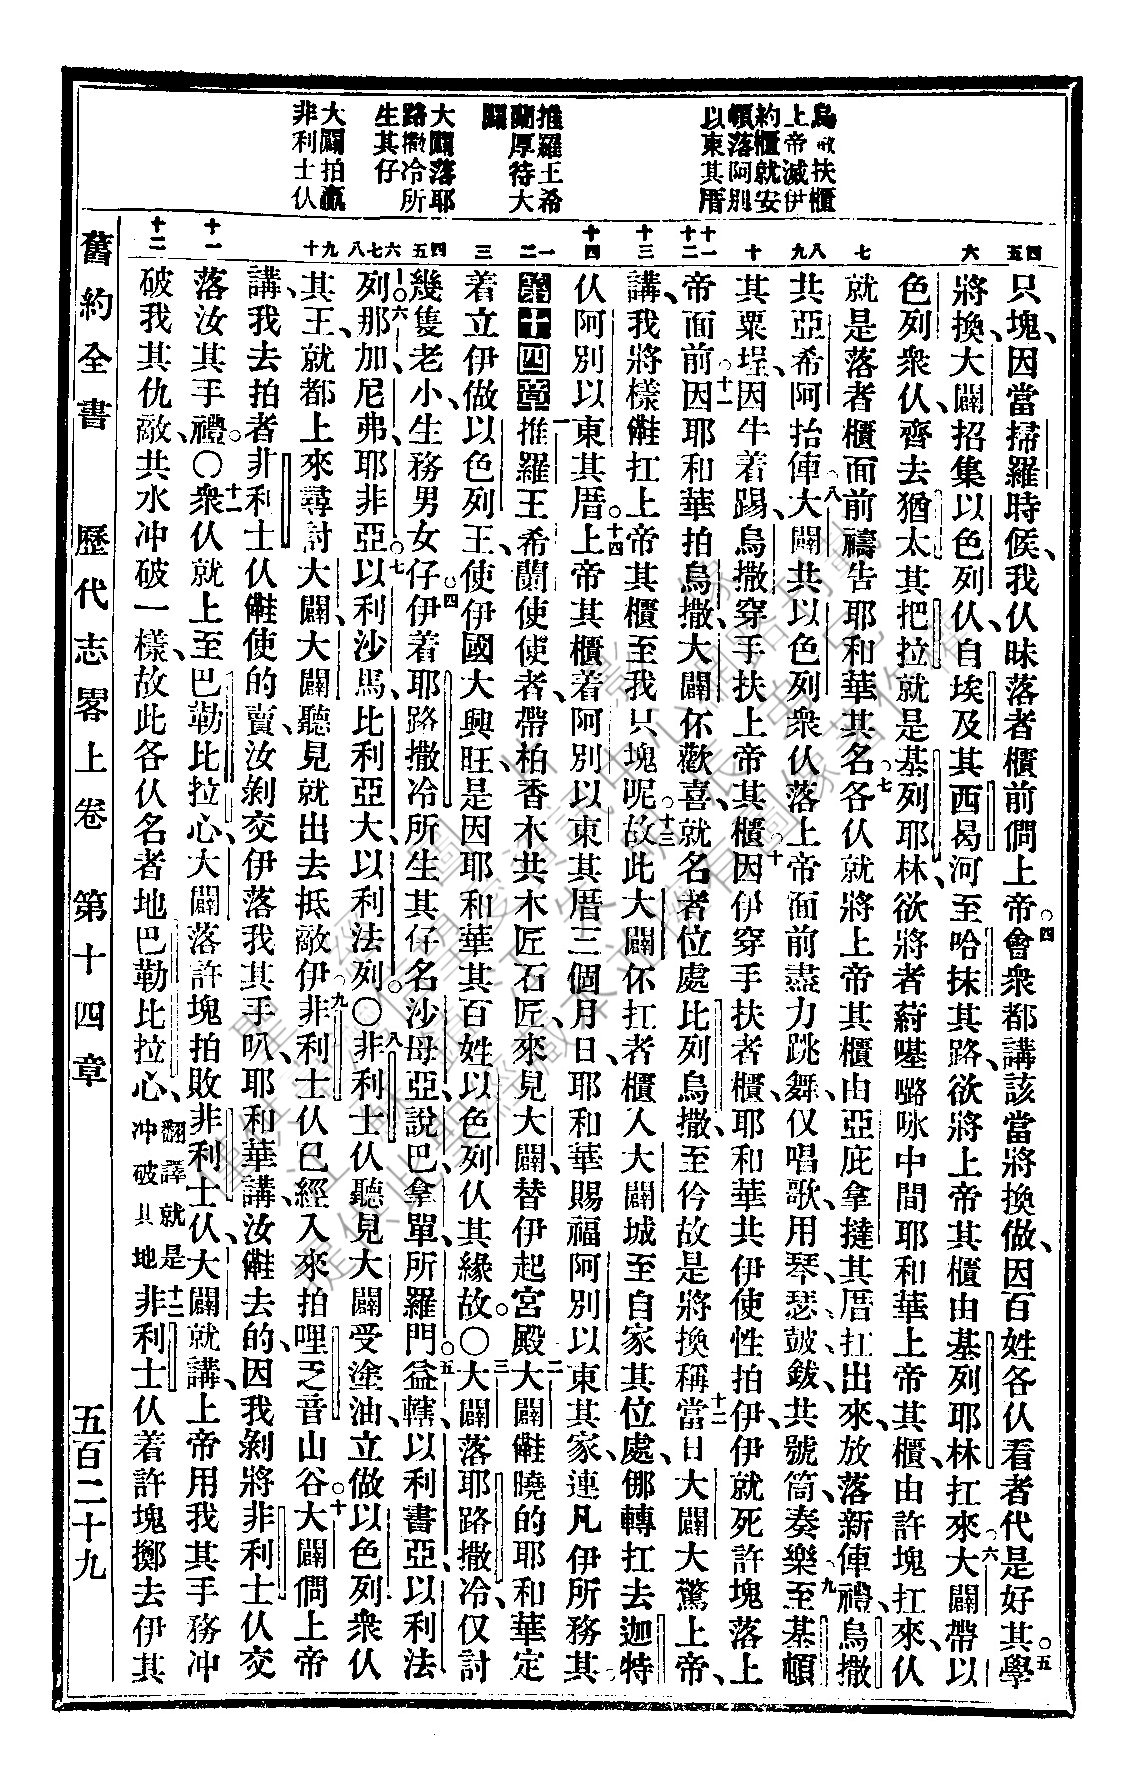 烏撒扶櫃
上帝滅伊
約櫃就安
頓落阿別
以東其厝
推羅王希
蘭厚待大
闢
大闢落耶
路撒冷所
生其仔
大闢拍贏
非利士仸
只塊、因當掃羅時候、我仸昧落者櫃前僩上帝。四會衆都講該當將換做、因百姓各仸看者代是好其。五學
將換、大闢招集以色列仸自埃及其西曷河至哈抹其路、欲將上帝其櫃由基列耶林扛來。六大闢帶以
色列衆仸、齊去猶太其把拉就是基列耶林、欲將者𥴊𡀔𡀔咏中間耶和華上帝其櫃、由許塊扛來、仸
就是落者櫃面前禱告耶和華其名。七各仸就將上帝其櫃由亞庇拿撻其厝扛出來、放落新俥禮、烏撒
共亞希阿抬俥。八大闢共以色列衆仸落上帝面前盡力跳舞、仅唱歌、用琴瑟鼓鈸、共號筒、奏樂。九至基頓
其粟埕、因牛着踢、烏撒穿手扶上帝其櫃。十因伊穿手扶者櫃、耶和華共伊使性拍伊、伊就死許塊落上
帝面前。十一因耶和華拍烏撒、大闢伓歡喜、就名者位處比列烏撒、至仱故是將換稱。十二當日大闢大驚上帝、
講、我將樣𠲥扛上帝其櫃至我只塊呢。十三故此大闢伓扛者櫃入大闢城至自家其位處、㑚轉扛去迦特
仸阿別以東其厝。十四上帝其櫃着阿別以東其厝三個月日、耶和華賜福阿別以東其家、連凡伊所務其
第十四章一推羅王希蘭使使者、帶柏香木共木匠石匠、來見大闢、替伊起宮殿。二大闢𠲥曉的耶和華定
着立伊做以色列王、使伊國大興旺、是因耶和華其百姓以色列仸其緣故。〇三大闢落耶路撒冷、仅討
幾隻老小、生務男女仔。四伊着耶路撒冷所生其仔名沙母亞、說巴、拿單、所羅門。五益轄、以利書亞、以利法
列。六那加、尼弗、耶非亞。七以利沙馬、比利亞大、以利法列。〇八非利士仸聽見大闢受塗油、立做以色列衆仸
其王、就都上來尋討大闢、大闢聽見就出去抵敵伊。九非利士仸已經入來拍哩乏音山谷。十大闢僩上帝
講、我去拍者非利士仸𠲥使的𣍐、汝剝交伊落我其手叭、耶和華講、汝𠲥去的、因我剝將非利士仸交
落汝其手禮。〇十一衆仸就上至巴勒比拉心、大闢落許塊拍敗非利士仸、大闢就講、上帝用我其手務冲
破我其仇敵、共水冲破一樣、故此各仸名者地巴勒比拉心、翻譯就是冲破其地十二非利士仸着許塊擲去伊其
舊約全書　歷代志畧上卷　第十四章　五百二十九